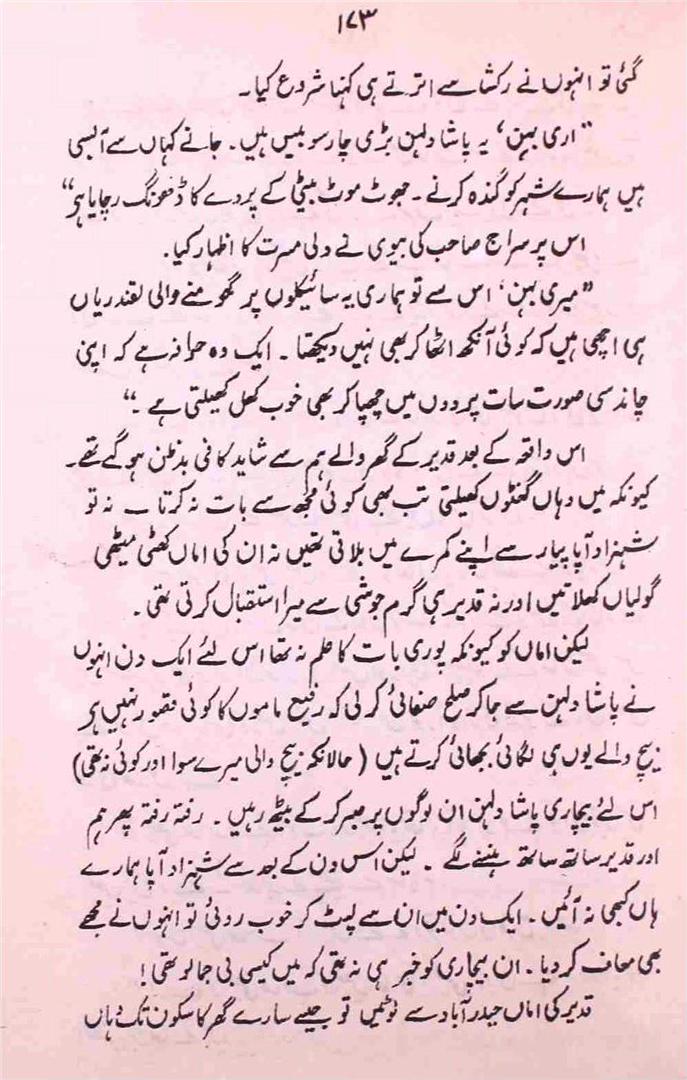 ۱۷۳
گئی تو انہوں نے رکشا سے اترتے ہی کہنا شروع کیا۔
”اری بہن، یہ پاشا دلہن بڑی چار سو بیس ہیں۔ جانے کہاں سے آ بسی
ہیں ہمارے شہر کو گندہ کرنے۔ جھوٹ موٹ بیٹی کے پردے کا ڈھونگ رچایا ہے“
اس پر سراج صاحب کی بیوی نے دلی مسرت کا اظہار کیا۔
”میری بہن، اس سے تو ہماری یہ سائیکلوں پر گھومنے والی لقندریاں
ہی اچھی ہیں کہ کوئی آنکھ اٹھا کر بھی نہیں دیکھتا۔ ایک وہ حرافہ ہے کہ اپنی
چاند سی صورت سات پردوں میں چھپا کر بھی خوب کھل کھیلتی ہے۔“
اس واقعہ کے بعد قدیر کے گھر والے ہم سے شاید کافی بدظن ہو گئے تھے۔
کیونکہ میں وہاں گھنٹوں کھیلتی تب بھی کوئی مجھ سے بات نہ کرتا۔ نہ تو
شہزاد آپا پیار سے اپنے کمرے میں بلاتی تھیں نہ ان کی اماں کھٹی میٹھی
گولیاں کھلاتیں اور نہ قدیر ہی گرم جوشی سے میرا استقبال کرتی تھی۔
لیکن اماں کو کیونکہ پوری بات کا علم نہ تھا اس لئے ایک دن انہوں
نے پاشا دلہن سے جا کر صلح صفائی کر لی کہ رفیع ماموں کا کوئی قصور نہیں ہے
بیچ والے یوں ہی لگائی بجھائی کرتے ہیں (حالانکہ بیچ والی میرے سوا اور کوئی نہ تھی)
اس لئے بیچاری پاشا دلہن ان لوگوں پر صبر کر کے بیٹھ رہیں۔ رفتہ رفتہ پھر ہم
اور قدیر ساتھ ساتھ ہنسنے لگے۔ لیکن اس دن کے بعد سے شہزاد آپا ہمارے
ہاں کبھی نہ آئیں۔ ایک دن میں ان سے لپٹ کر خوب روئی تو انہوں نے مجھے
بھی معاف کر دیا۔ ان بیچاری کو خبر ہی نہ تھی کہ میں کیسی بی جمالو تھی!
قدیر کی اماں حیدرآباد سے لوٹیں تو جیسے سارے گھر کا سکون تک وہاں